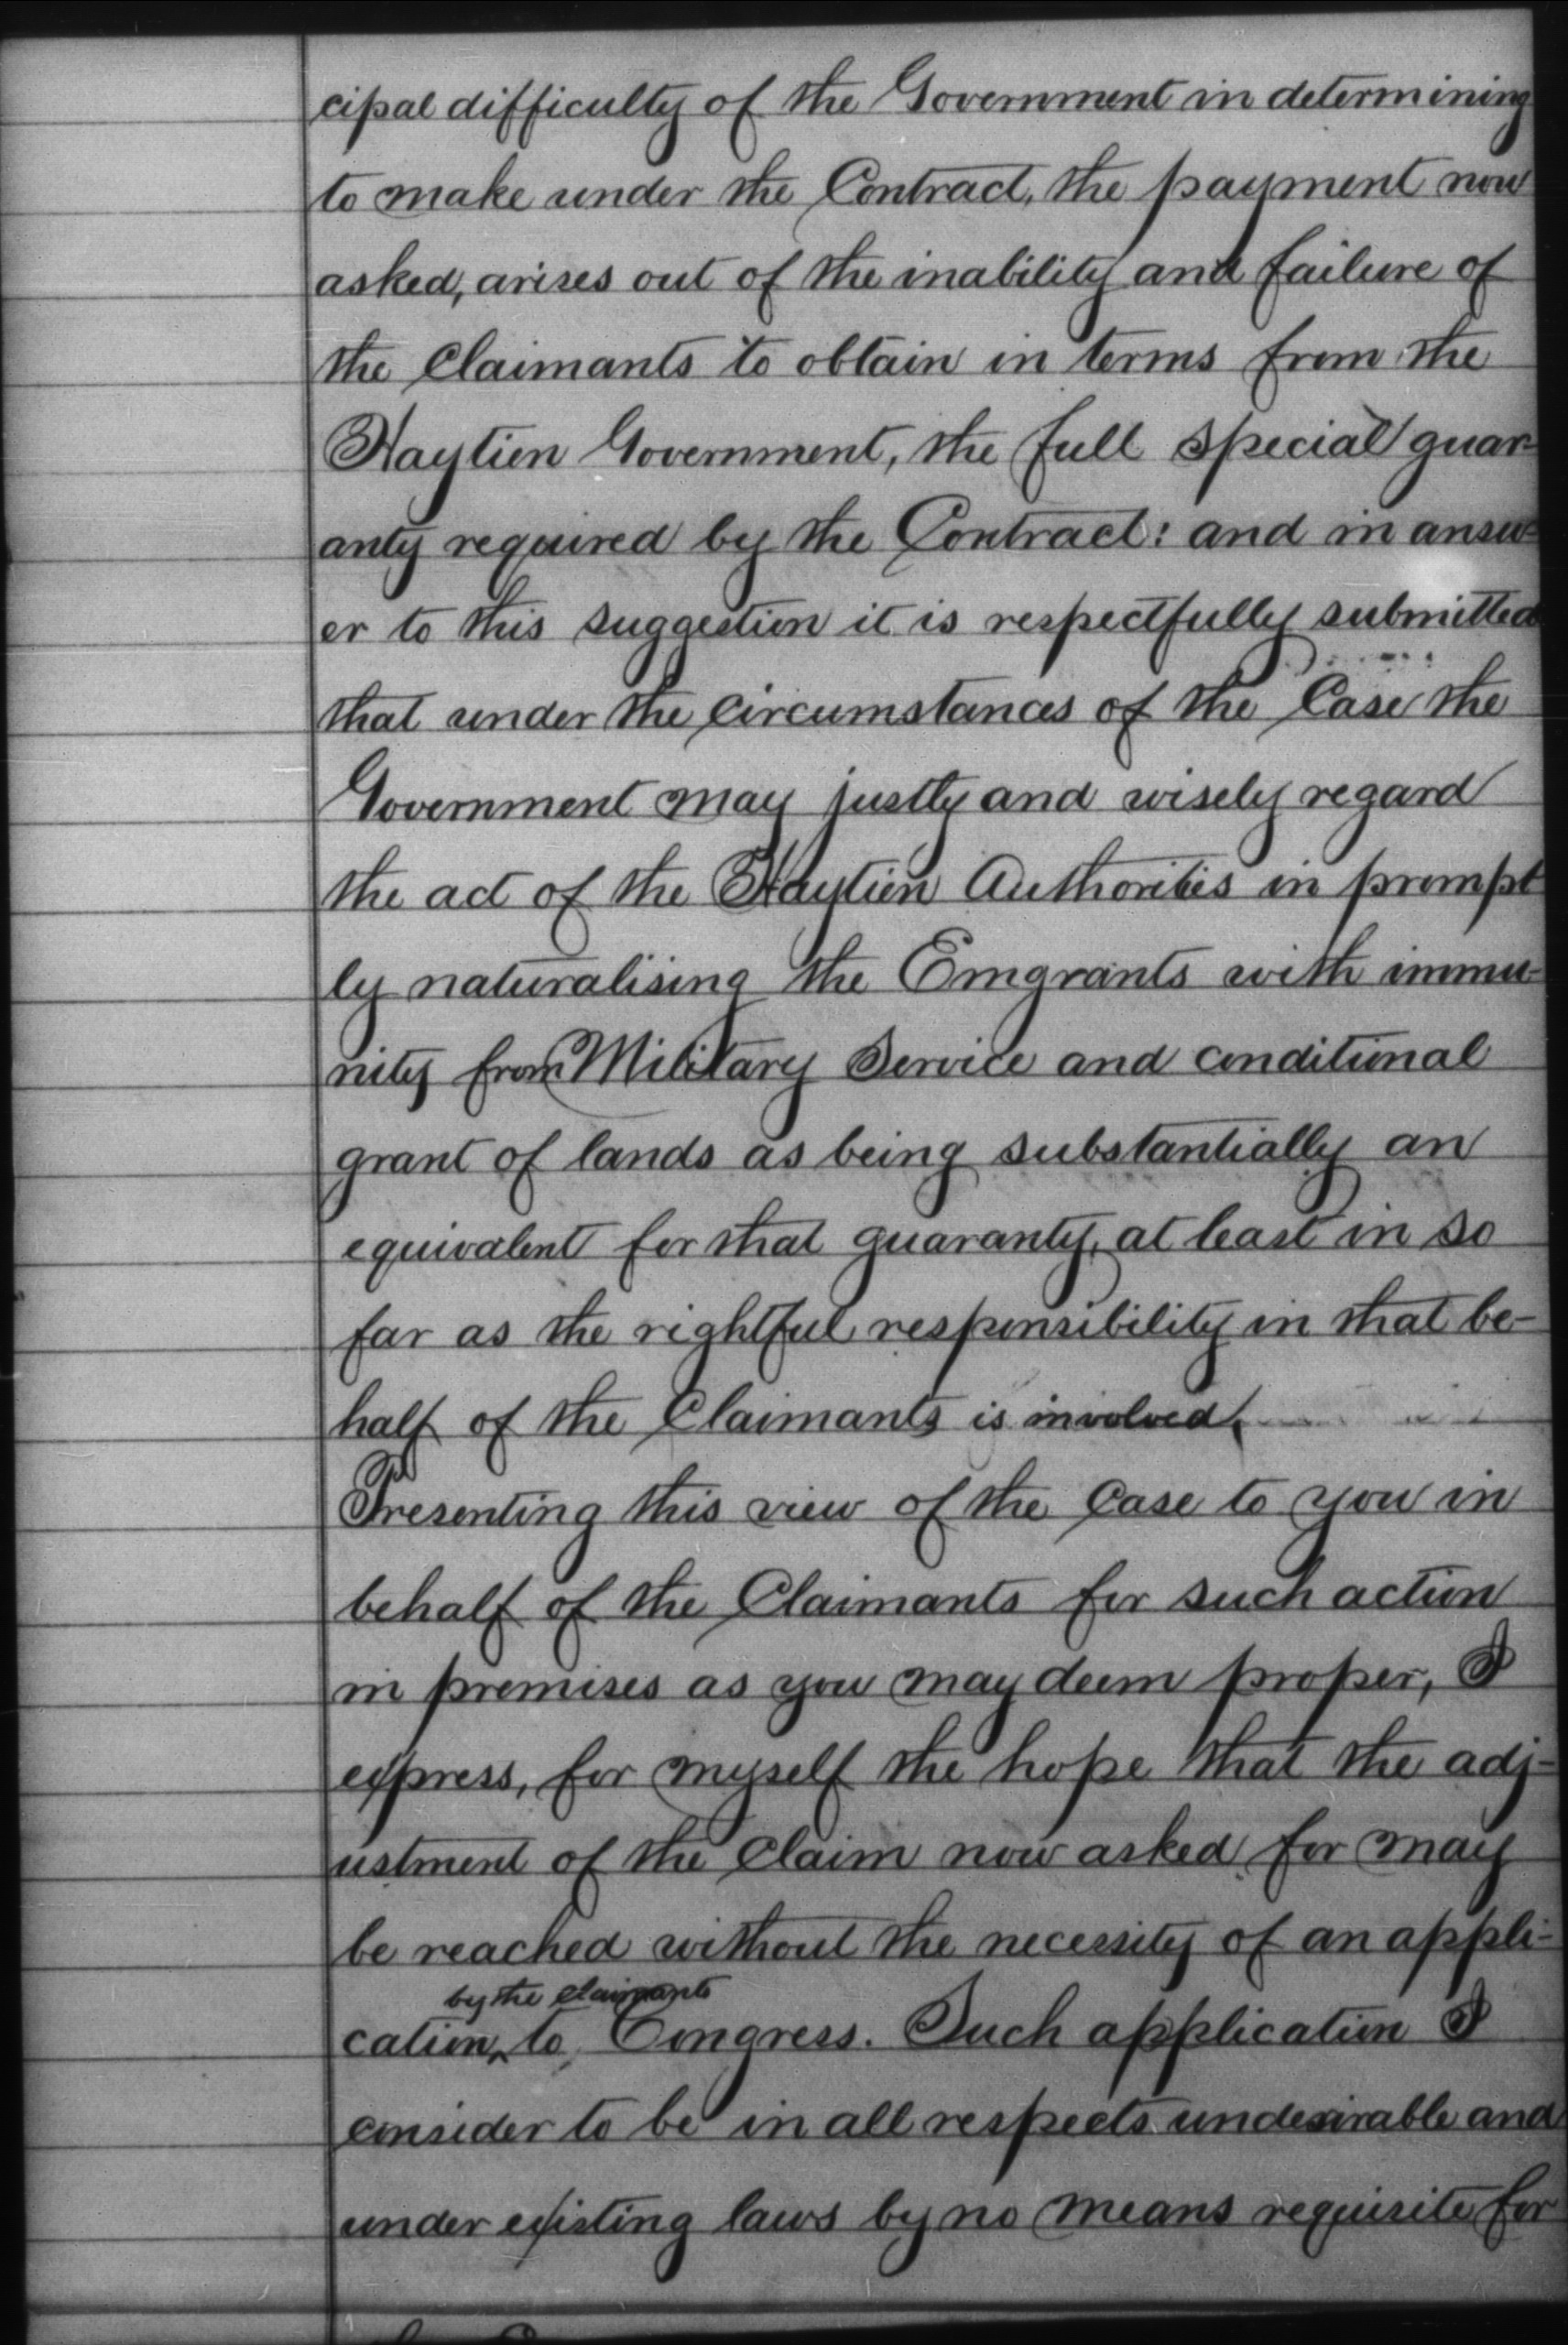 cipal difficulty of the Government in determining
to make under the Contract, the payment now
asked, arises out of the inability and failure of
the Claimants to obtain in terms from the
Haytien Government, the full special guar-
anty required by the Contract: and in answ-
er to this suggestion it is respectfully submitted
that under the circumstances of the Case the
Government may justly and wisely regard
the act of the Haytien Authorities in prompt
ly naturalising the Emgrants with immu-
nity from Military Service and conditional
grant of lands as being substantially an
equivalent for that guaranty, at least in so
far as the rightful responsibility in that be-
half of the Claimants is involved.
Presenting this view of the Case to you in
behalf of the Claimants for such action
in premises as you may deem proper, I
express, for myself the hope that the adj-
ustment of the Claim now asked for may
be reached without the necessity of an appli-
by the claimants
cation ^ to Congress. Such application I
consider to be in all respects undesirable and
under existing laws by no means requisite for